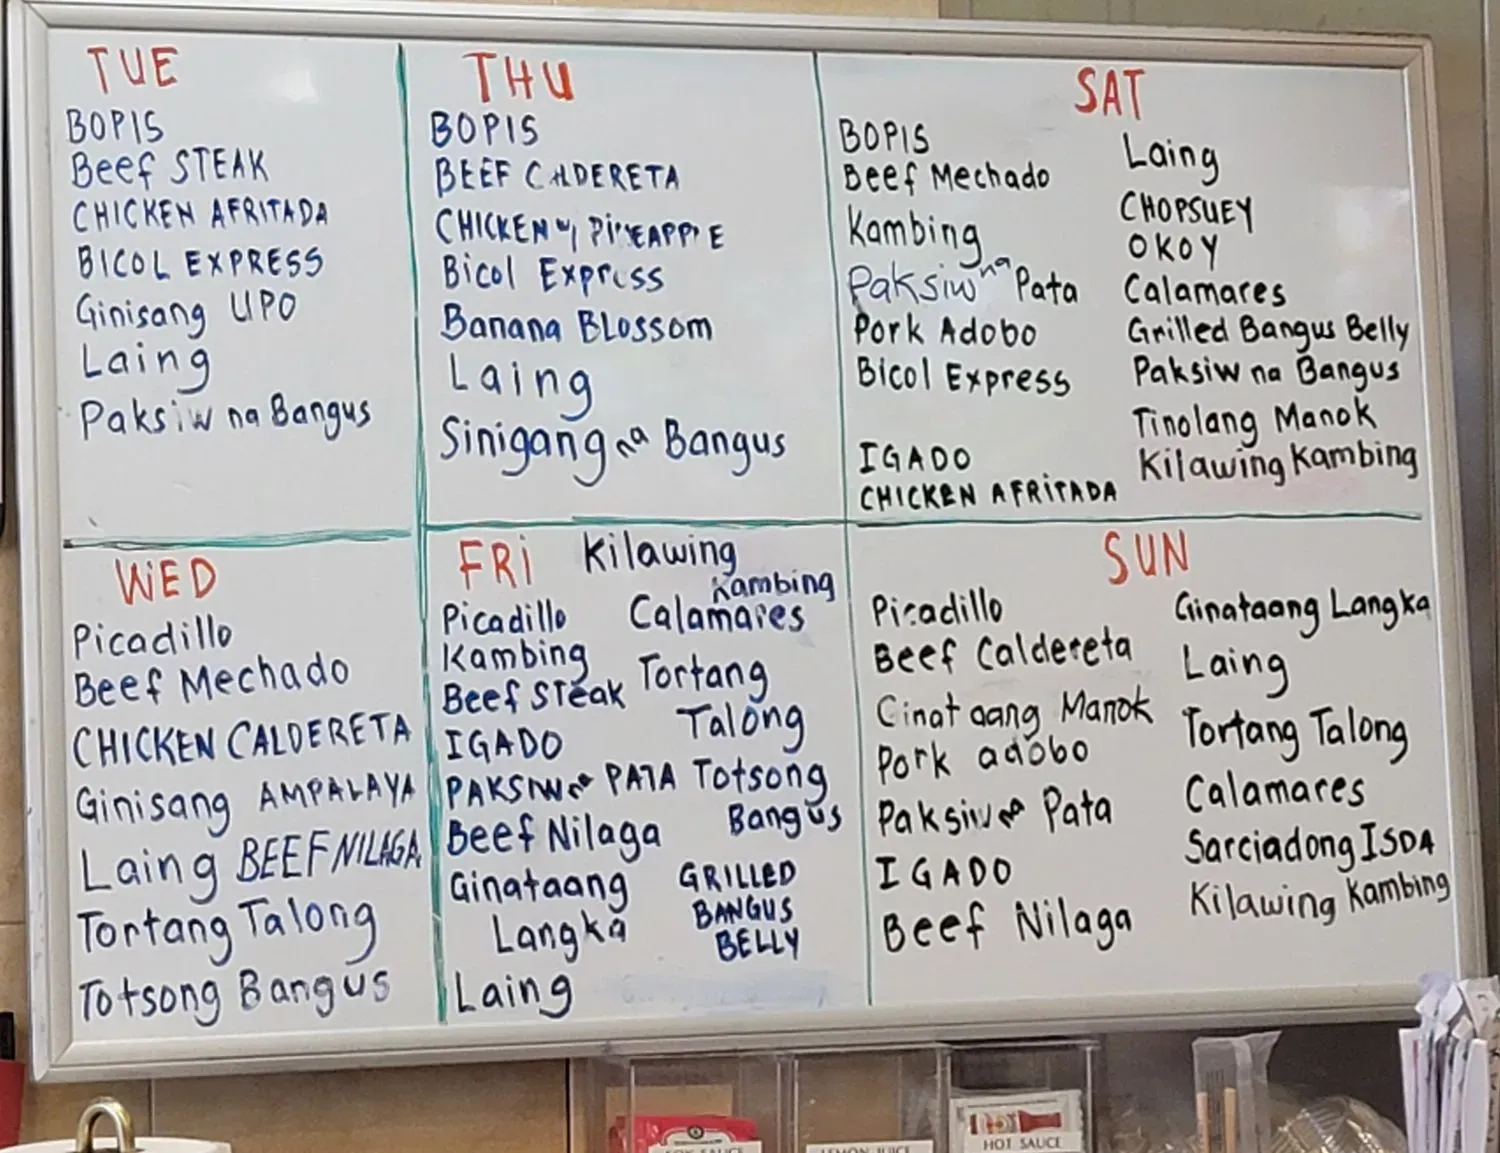 TUE
BOPIS
Beef STEAK
CHICKEN AFRITADA
BICOL EXPRESS
Ginisang UPO
Laing
Paksiw na Bangus
THU
BOPIS
BEEF CALDERETA
CHICKEN w/ PINEAPPLE
Bicol Express
Banana BLossom
Laing
Sinigang na Bangus
SAT
BOPIS
Beef Mechado
Kambing
Paksiw na Pata
Pork Adobo
Bicol Express
IGADO
CHICKEN AFRITADA
Laing
CHOPSUEY
OKOY
Calamares
Grilled Bangus Belly
Paksiw na Bangus
Tinolang Manok
Kilawing Kambing
WED
Picadillo
Beef Mechado
CHICKEN CALDERETA
Ginisang AMPALAYA
Laing BEEF NILAGA
Tortang Talong
Totsong Bangus
FRI
Picadillo
Kambing
Beef Steak
IGADO
PAKSIW na PATA
Beef Nilaga
Ginataang
Langka
Laing
Kilawing
Kambing
Calamares
Tortang
Talong
Totsong
Bangus
GRILLED
BANGUS
BELLY
SUN
Picadillo
Beef Caldereta
Ginataang Manok
Pork adobo
Paksiw na Pata
IGADO
Beef Nilaga
Ginataang Langka
Laing
Tortang Talong
Calamares
Sarciadong ISDA
Kilawing Kambing
SOY SAUCE
LEMON JUICE
HOT SAUCE